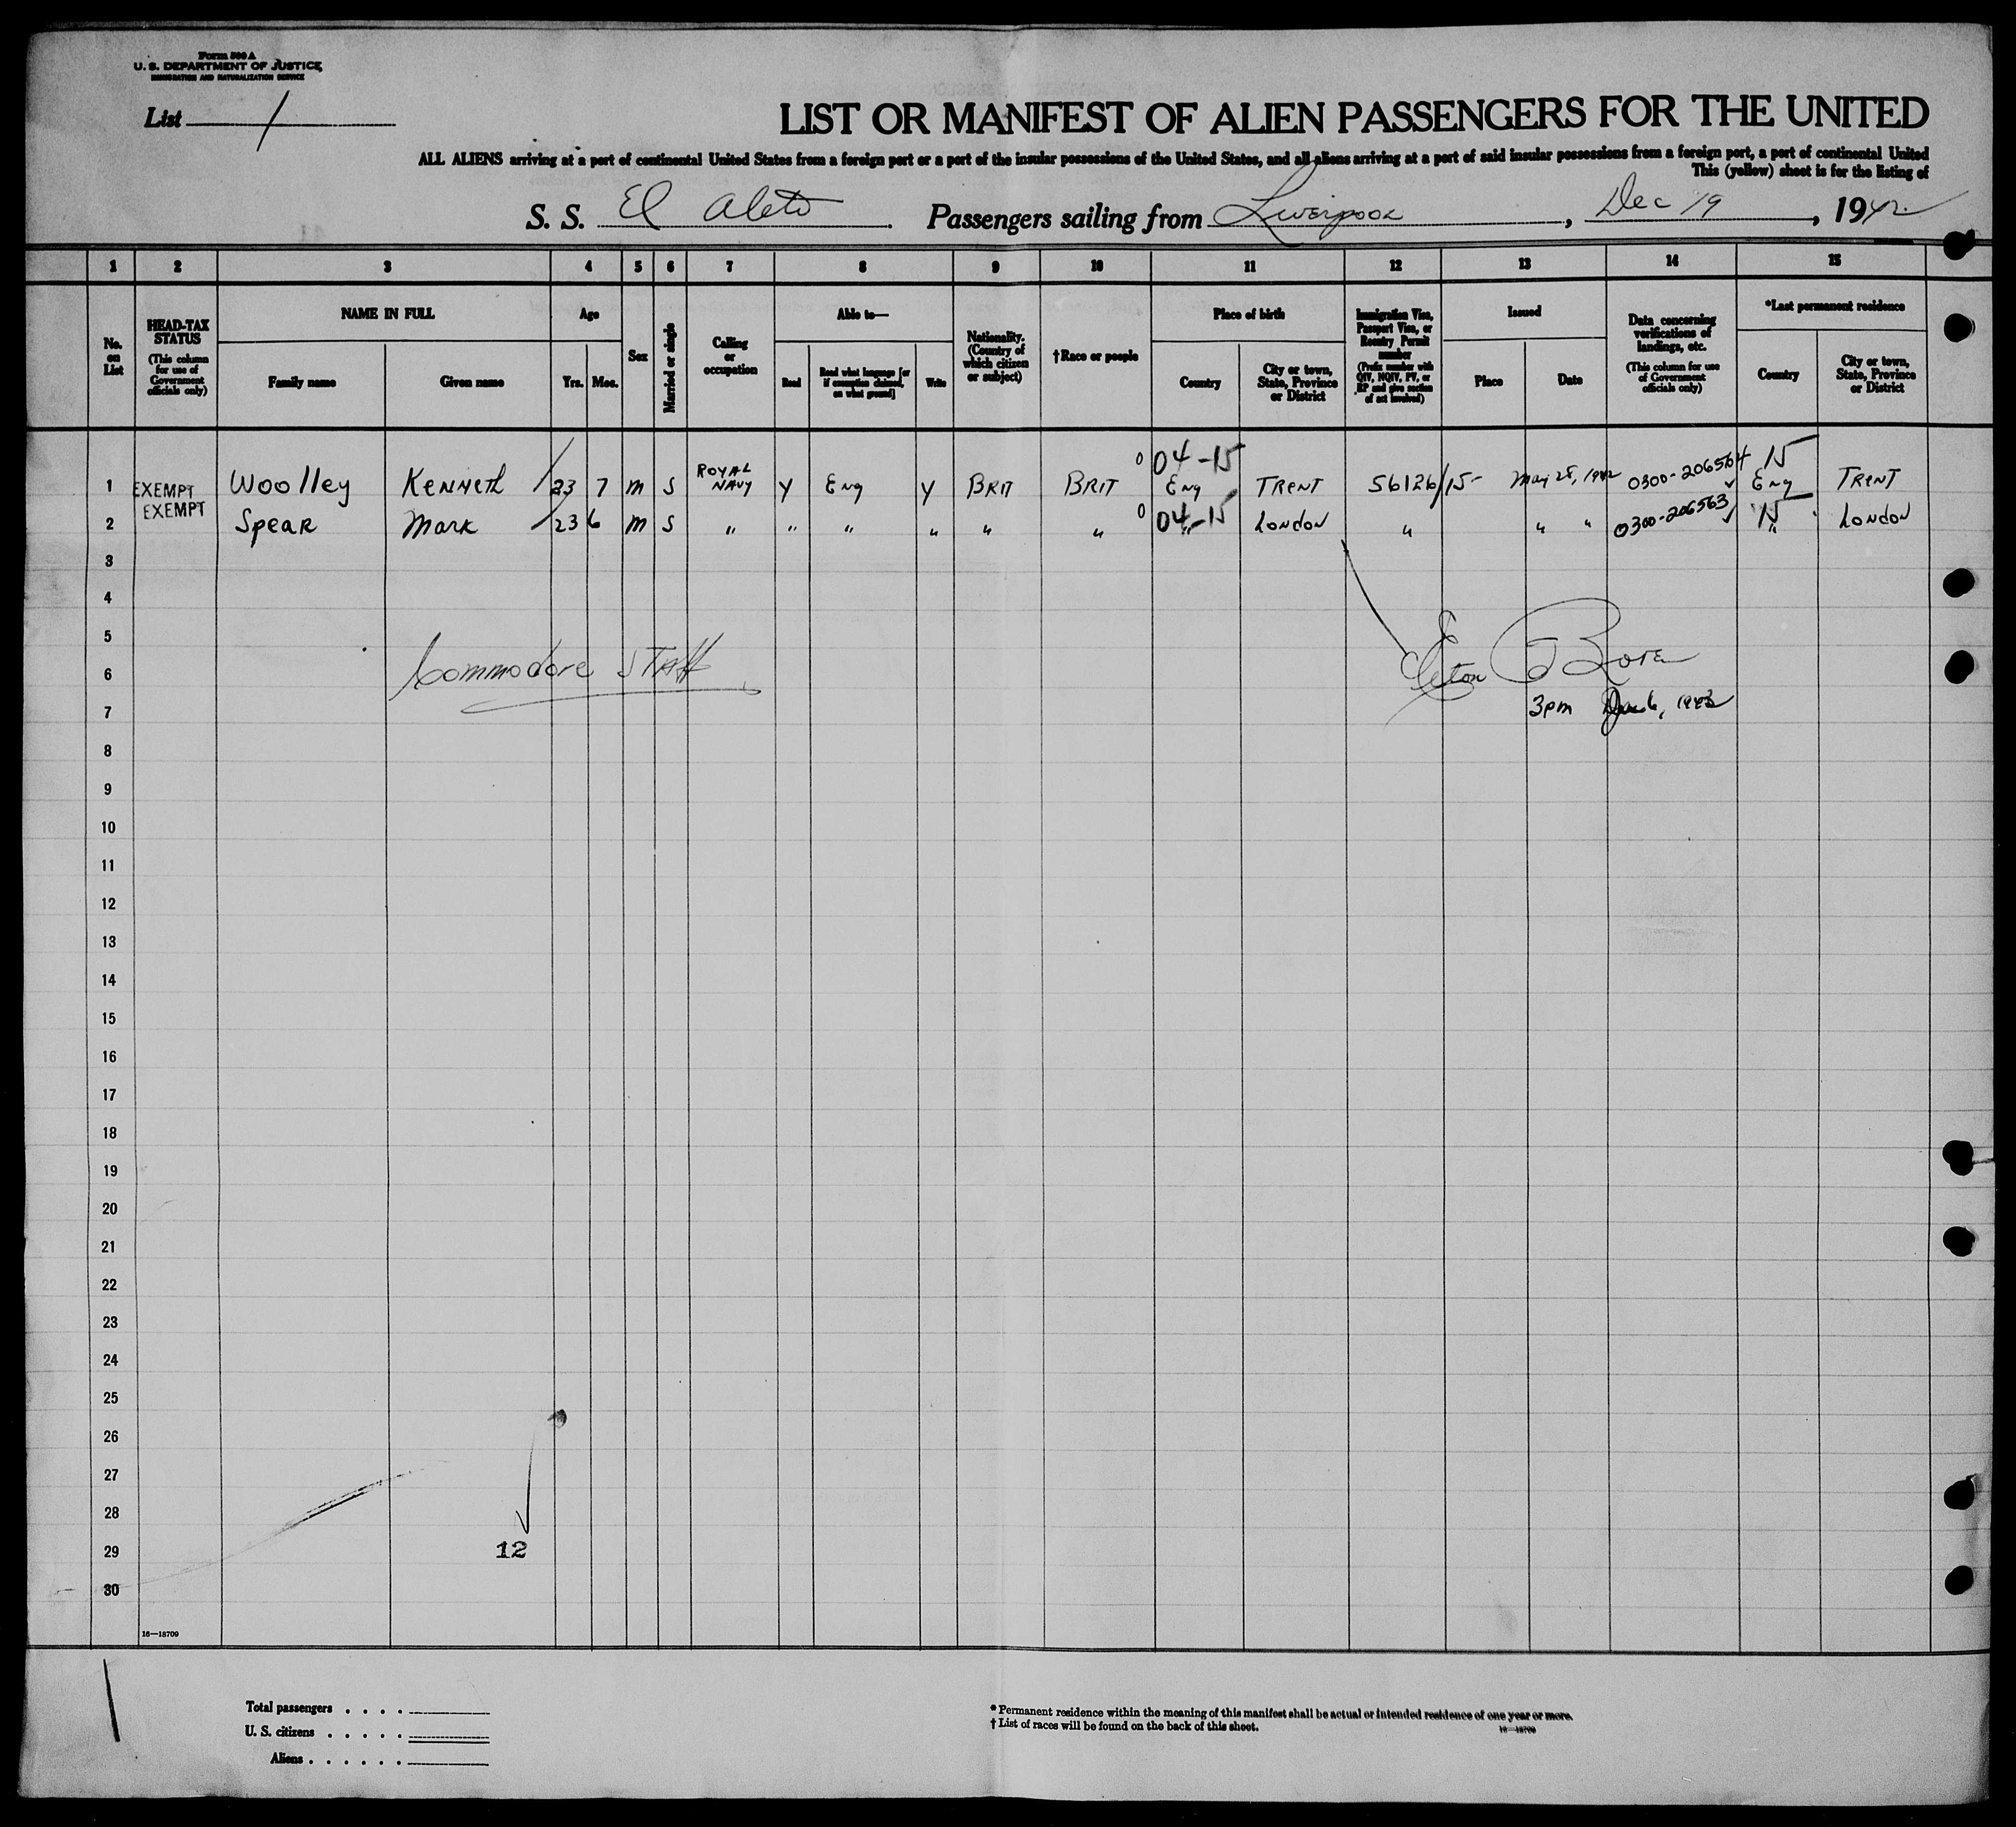 Form 500 A
U. S. DEPARTMENT OF JUSTICE
IMMIGRATION AND NATURALIZATION SERVICE
List 1
LIST OR MANIFEST OF ALIEN PASSENGERS FOR THE UNITED
ALL ALIENS arriving at a port of continental United States from a foreign port or a port of the insular possessions of the United States, and all aliens arriving at a port of said insular possessions from a foreign port, a port of continental United
This (yellow) sheet is for the listing of
S. S. El Aleto. Passengers sailing from Liverpool, Dec 19, 1942
1 2 3 4 5 6 7 8 9 10 11 12 13 14 15
No. on List
HEAD-TAX STATUS (This column for use of Government officials only)
NAME IN FULL
Family name Given name
Age
Yrs. Mos.
Sex
Married or single
Calling or occupation
Able to—
Read
Read what language [or if exemption claimed, on what ground]
Write
Nationality. (Country of which citizen or subject)
†Race or people
Place of birth
Country
City or town, State, Province or District
Immigration Visa, Passport Visa, or Reentry Permit number (Prefix number with QIV, NQIV, PV, or RP and give section of act involved)
Issued
Place Date
Data concerning verifications of landings, etc. (This column for use of Government officials only)
*Last permanent residence
Country
City or town, State, Province or District
04-15 15
1 EXEMPT Woolley Kenneth 23 7 m S ROYAL NAVY Y Eng Y BRIT BRIT Eng TRENT 56126/15- May 28, 1942 0300-206564 Eng TRENT
2 EXEMPT Spear Mark 23 6 m S " " " " " " 04-15 " London " " " 0300-206563 15 " London
3
4
5
6 Commodore STAFF
7 3pm Jan 6, 1943
8
9
10
11
12
13
14
15
16
17
18
19
20
21
22
23
24
25
26
27
28
29 12
30
16—18709
Total passengers . . . .
U. S. citizens . . . . .
Aliens . . . . . .
* Permanent residence within the meaning of this manifest shall be actual or intended residence of one year or more.
† List of races will be found on the back of this sheet.
16—18709